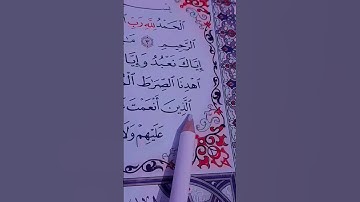 الْحَمْدُ لِلَّهِ رَبِّ
الرَّحِيمِ ٣
إِيَّاكَ نَعْبُدُ وَإِيَّا
اهْدِنَا الصِّرَاطَ
الَّذِينَ أَنْعَمْتَ
عَلَيْهِمْ وَلَا